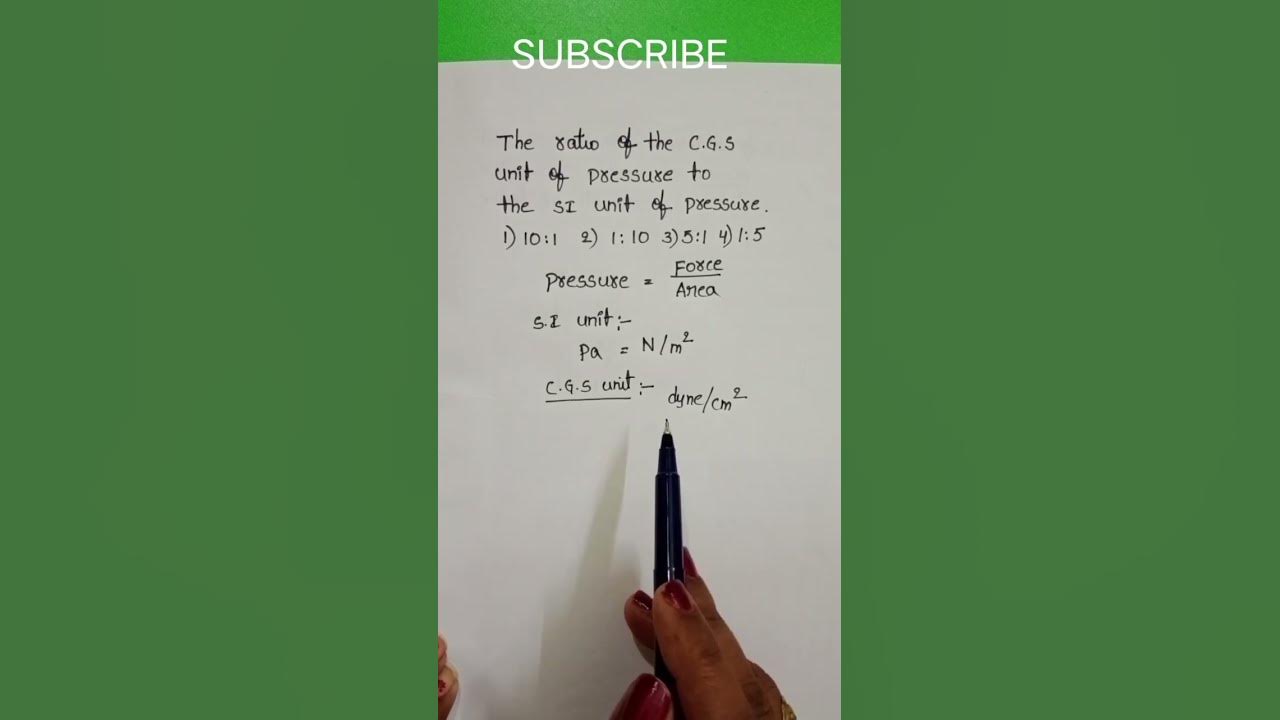 SUBSCRIBE
The ratio of the C.G.S
unit of pressure to
the SI unit of pressure.
1) 10:1 2) 1:10 3) 5:1 4) 1:5
Pressure = Force
Area
S.I unit:-
Pa = N/m²
C.G.S unit:- dyne/cm²